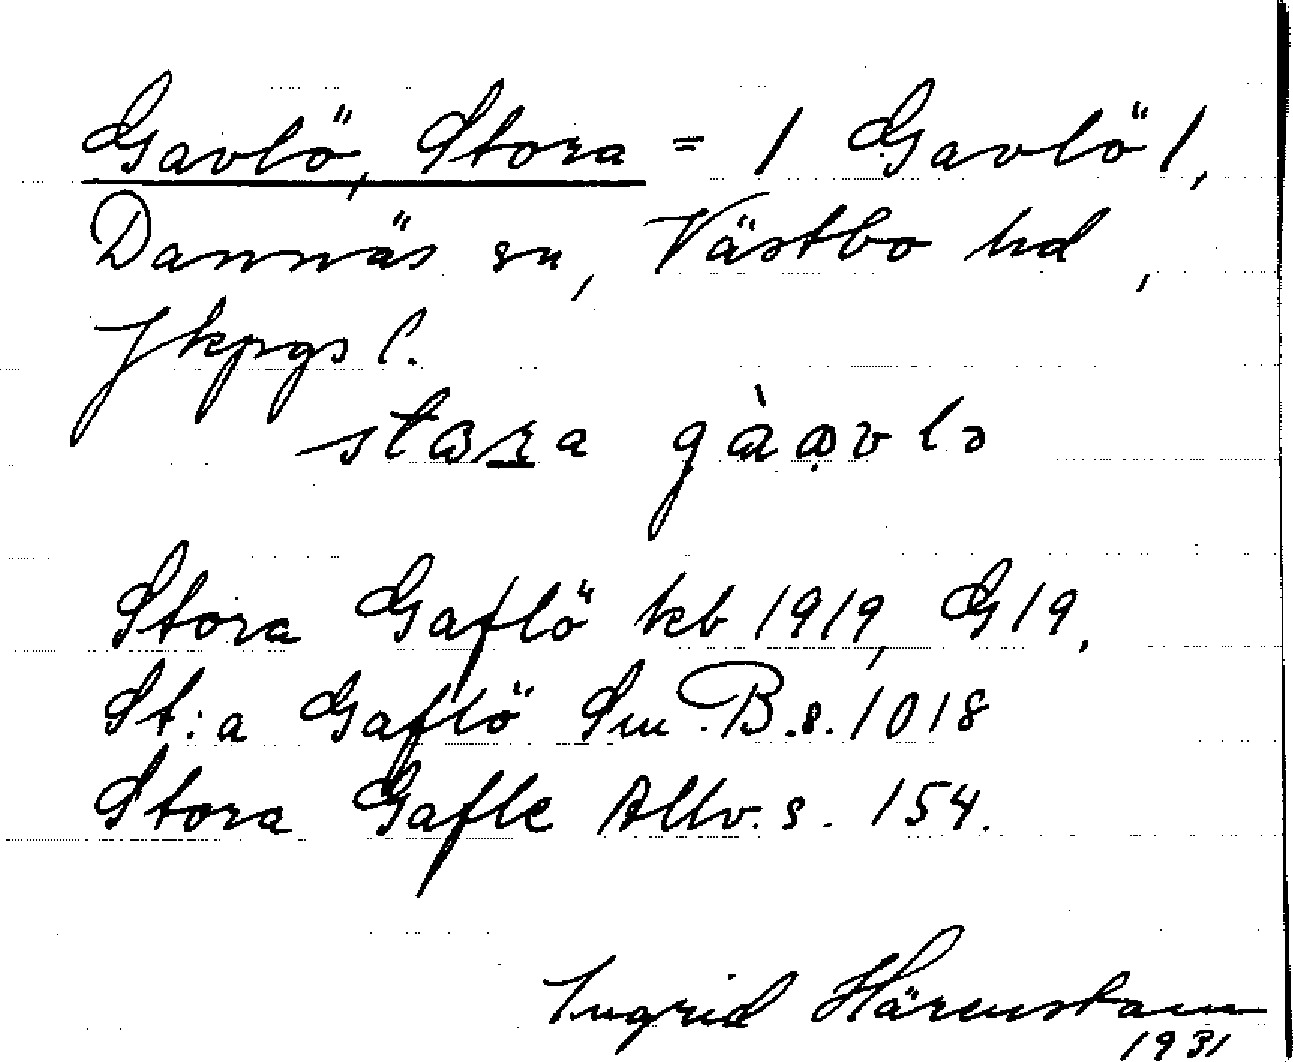 Gavlö, Stora = 1 Gavlö 1,
Dannäs sn, Västbo hd,
Jkpgs l.
stɑra gàɑvlə
Stora Gaflö kb 1919, G19.
St:a Gaflö Sm.B.s. 1018
Stora Gafle Allv. s. 154.
Ingrid Härenstam
1931